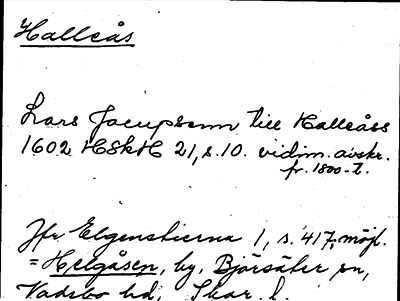 Halleås
Lars Jacupsonn till Halleåss
1602 HSkH 21, s. 10. vidim. avskr.
fr. 1800-t.
Jfr Elgenstierna 1, s. 417, möjl.
= Helgåsen, by, Björsäter sn,
Vadsbo hd, Skar. l.